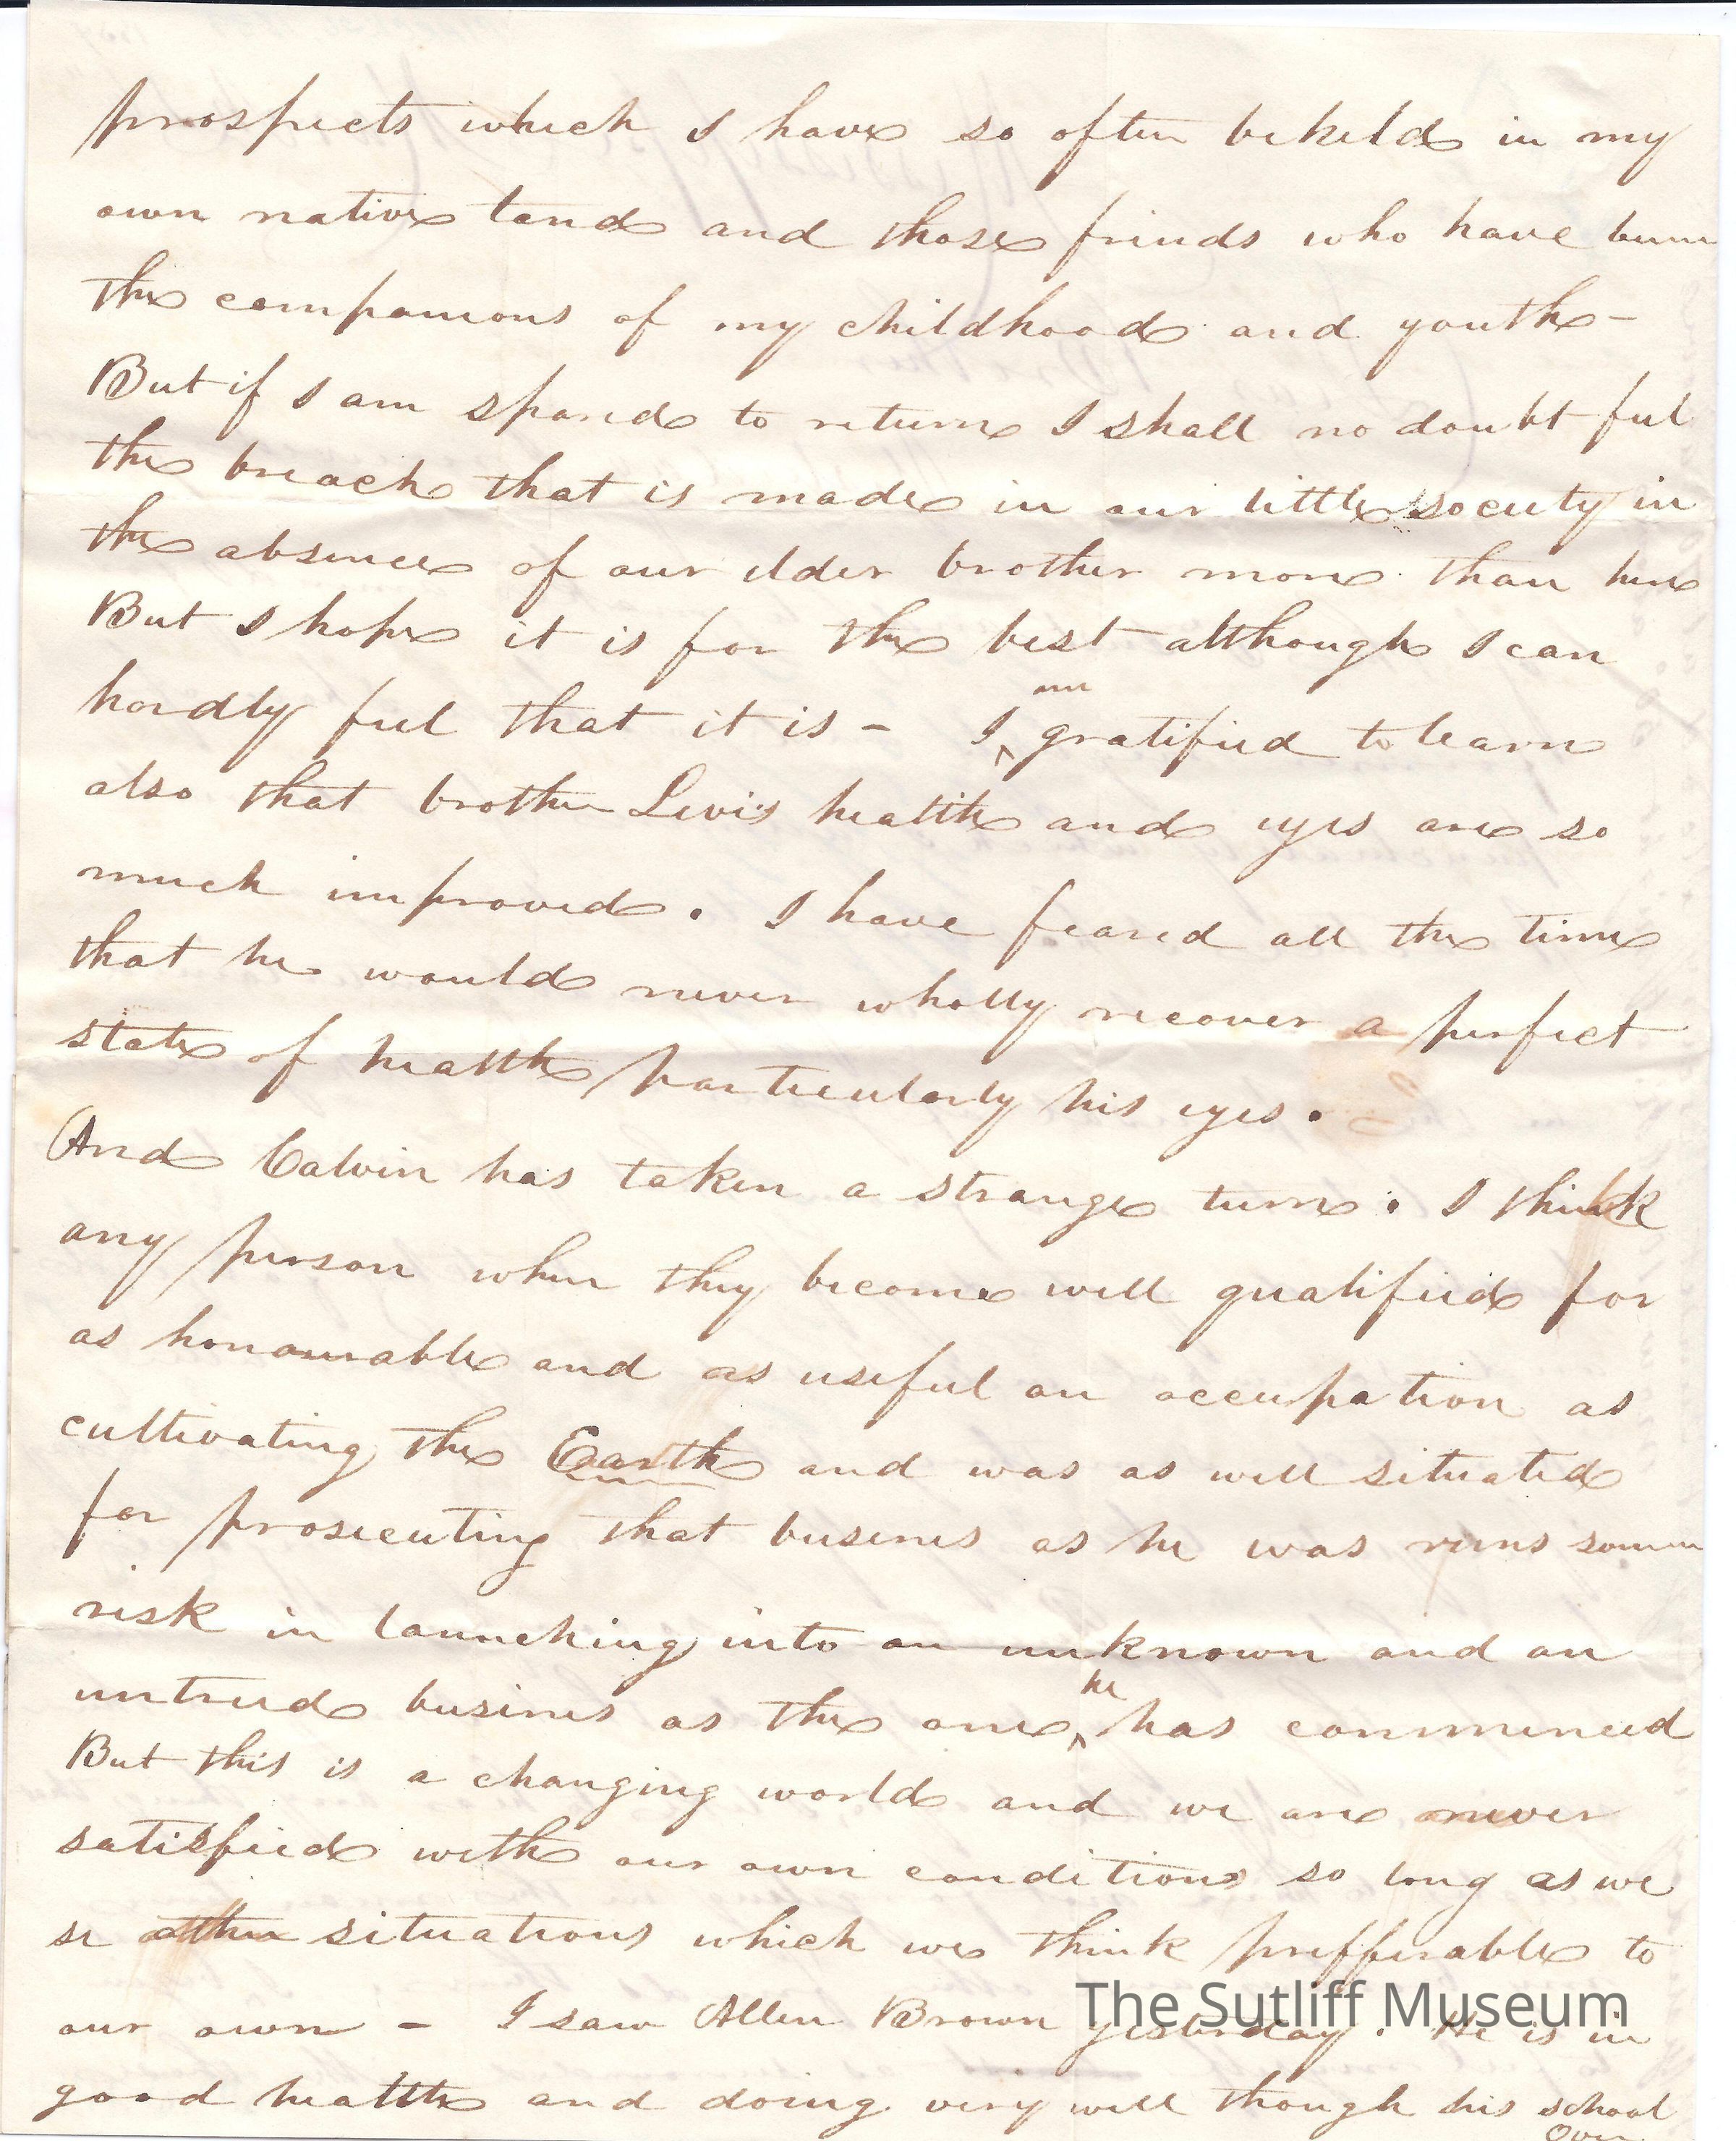 prospects which I have so often beheld in my
own native land and those friends who have been
the companions of my childhood and youth -
But if I am spared to return I shall no doubt feel
the breach that is made in our little society in
the absence of our elder brother more than here
But I hope it is for the best although I can
hardly feel that it is - I am gratified to learn
also that brother Levi's health and eyes are so
much improved. I have feared all the time
that he would never wholly recover a perfect
state of health particularly his eyes.
And Calvin has taken a strange turn. I think
any person when they become well qualified for
as honourable and as useful an occupation as
cultivating the Earth and was as well situated
for prosecuting that busines as he was runs some
risk in launching into an unknown and an
untried busines as the one he has commenced
But this is a changing world and we are never
satisfied with our own conditions so long as we
se other situations which we think prefferable to
our own - I saw Allen Brown yesterday. He is in
good health and doing very well though his school
Over
The Sutliff Museum